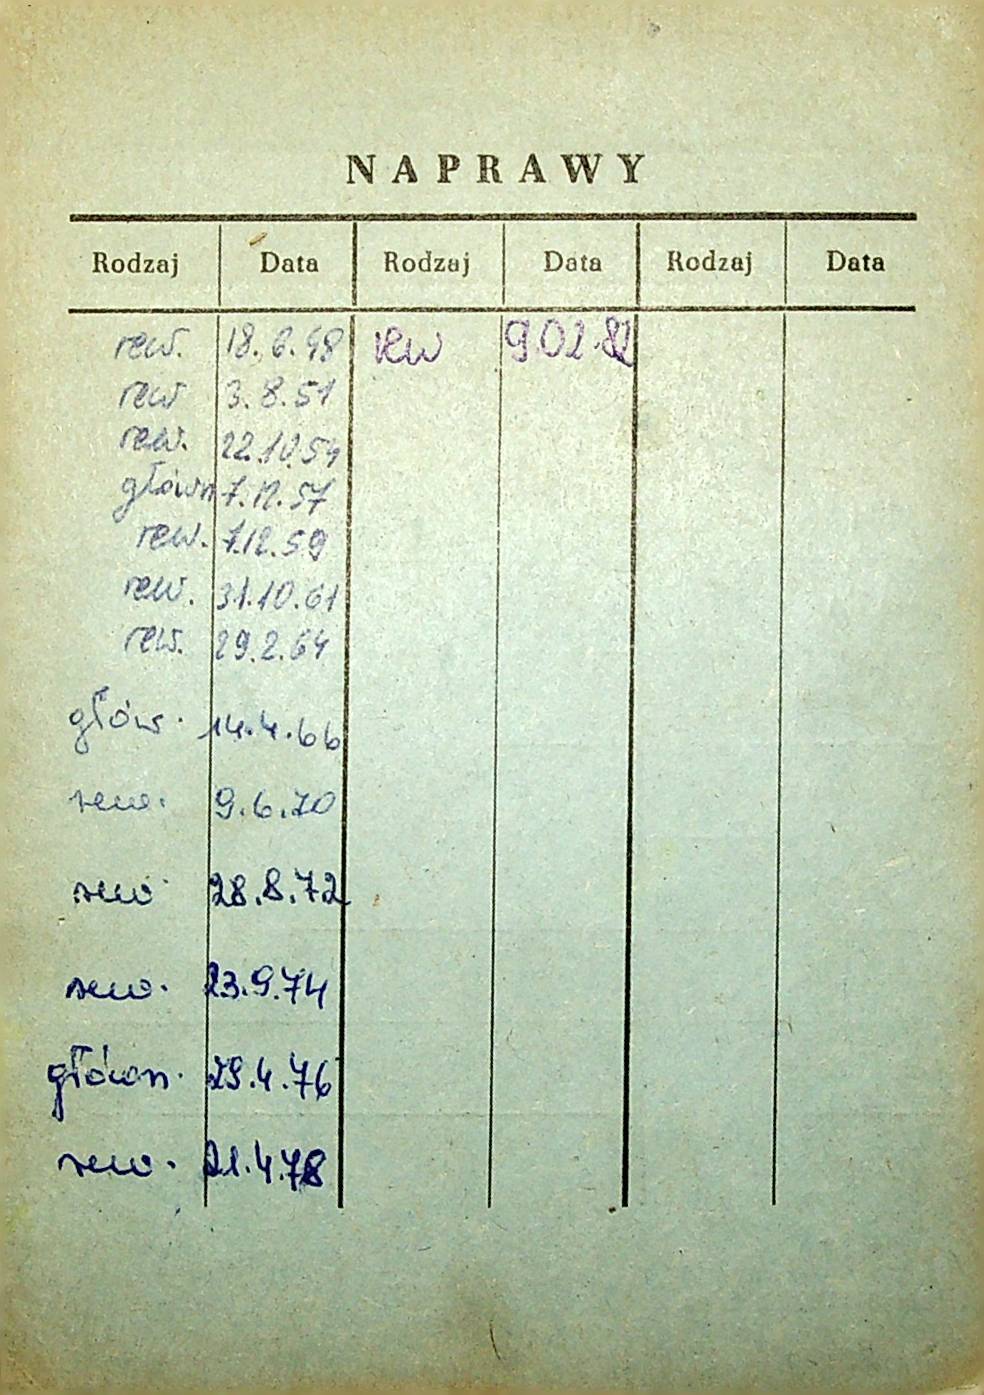 NAPRAWY
Rodzaj Data Rodzaj Data Rodzaj Data
rew. 18.6.48 rew 9.02.82
rew 3.8.51
rew. 22.10.54
główn 7.12.57
rew. 7.12.59
rew. 31.10.61
rew. 29.2.64
głów. 14.4.66
rew. 9.6.70
rew. 28.8.72
rew. 23.9.74
główn. 29.4.76
rew. 21.4.78